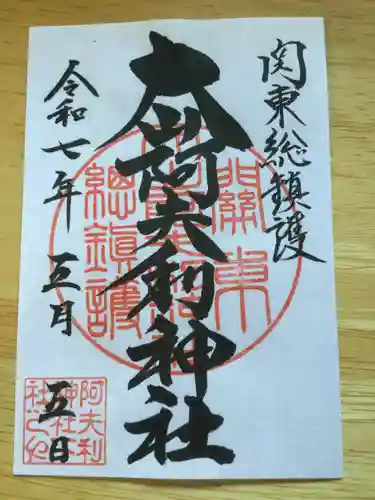 関東総鎮護
大山阿夫利神社
令和七年五月五日
關東
總鎮護
阿夫利
神社下
社之印